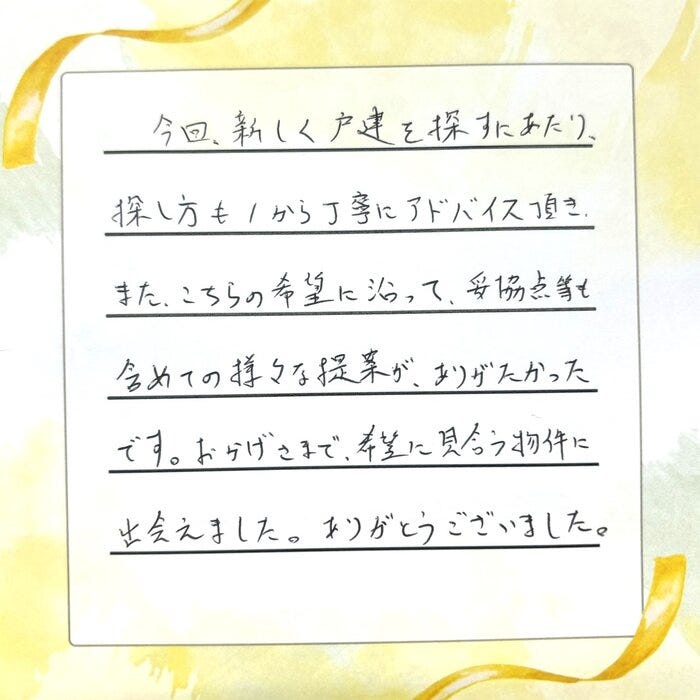 今回、新しく戸建を探すにあたり、
探し方も1から丁寧にアドバイス頂き、
また、こちらの希望に沿って、妥協点等も
含めての様々な提案が、ありがたかった
です。おかげさまで、希望に見合う物件に
出会えました。ありがとうございました。